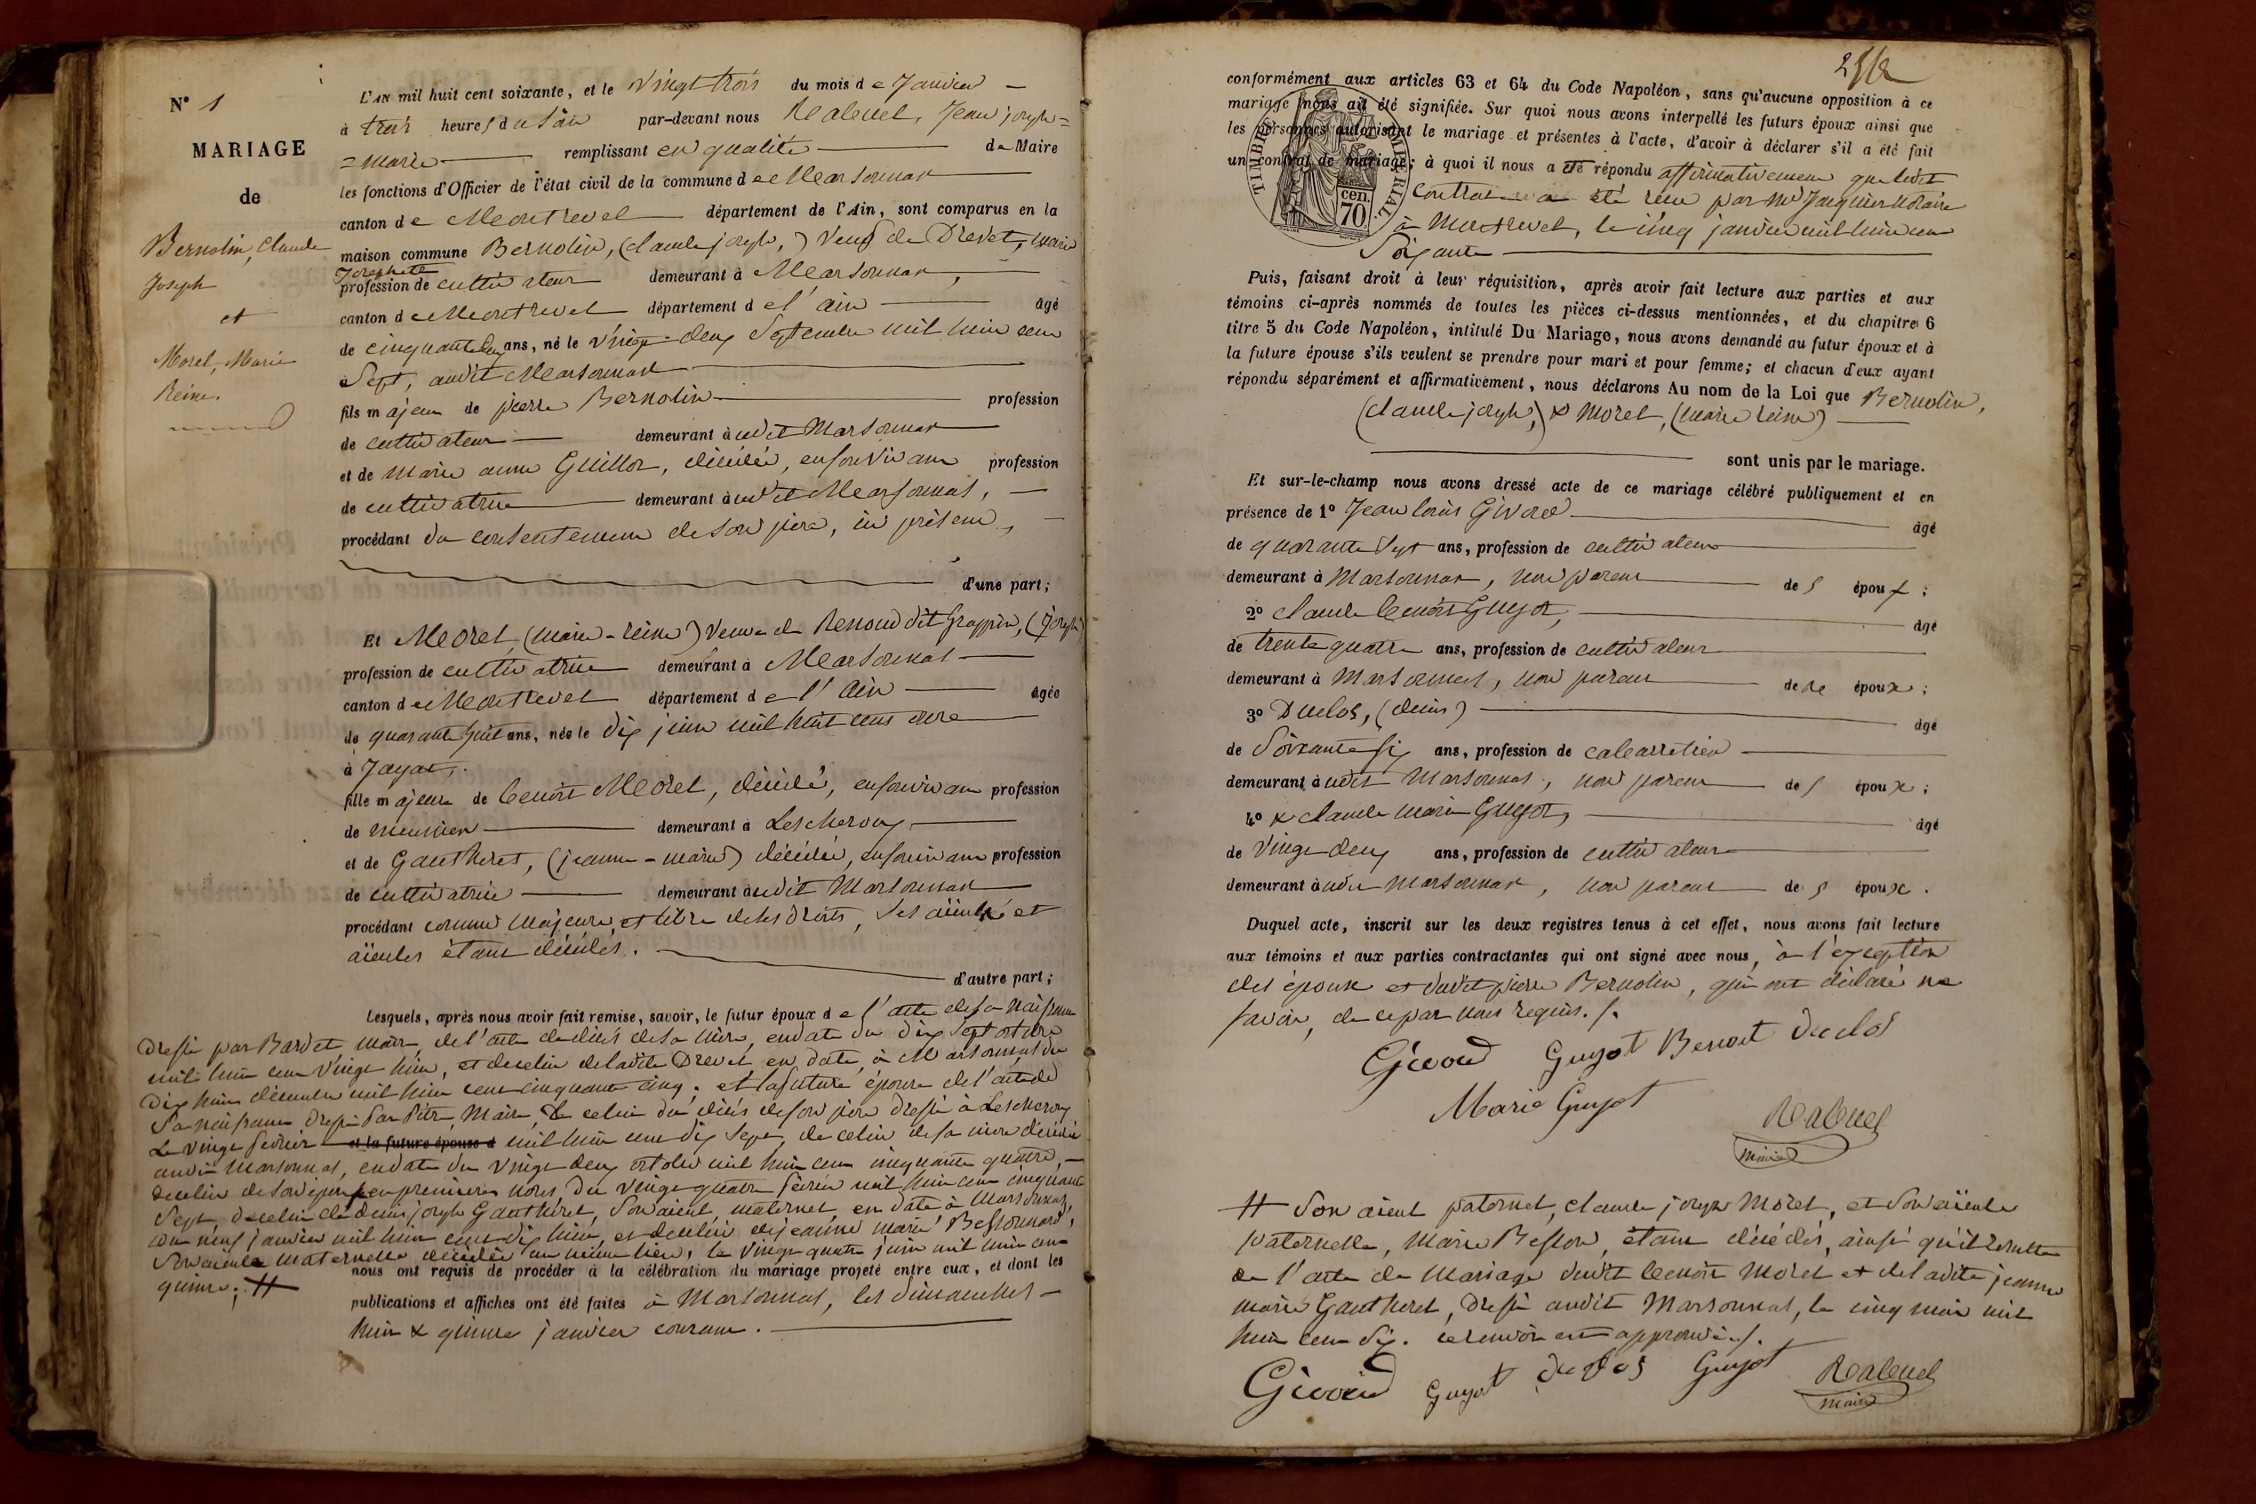 N° 1
MARIAGE
de
Bernolin, Claude
Joseph
et
Morel, Marie
Reine.
L'AN mil huit cent soixante, et le vingt trois du mois de Janvier
à trois heures du soir par-devant nous Rabuel, Jean joseph=
=marie remplissant en qualité de Maire
les fonctions d'Officier de l'état civil de la commune de Marsonnas
canton de Montrevel département de l'Ain, sont comparus en la
maison commune Bernolin, (claude joseph,) veuf de Drevet, marie
Josephete
profession de cultivateur demeurant à Marsonnas,
canton de Montrevel département de l'ain âgé
de cinquante deux ans, né le vingt-deux Septembre mil huit cent
Sept, audit Marsonnas
fils majeur de pierre Bernolin profession
de cultivateur demeurant àudit Marsonnas
et de marie anne Guillot, décédée, en son vivant profession
de cultivatrice demeurant àudit Marsonnas,
procédant du consentement de son père, ici présent,
d'une part;
Et Morel, (marie-reine) veuve de Renoud dit Grappin, (joseph)
profession de cultivatrice demeurant à Marsonnas
canton de Montrevel département de l'Ain âgée
de quarante huit ans, née le dix juin mil huit cent onze
à Jayat,
fille majeure de benoit Morel, décédé, en son vivant profession
de meunier demeurant à Lescheroux
et de Gautheret, (jeanne-marie) décédée, en son vivant profession
de cultivatrice demeurant àudit Marsonnas
procédant comme majeure, et libre de ses droits, ses aïeuls et
aïeules étant décédés.
d'autre part;
Lesquels, après nous avoir fait remise, savoir, le futur époux de l'acte de sa naissance
dressé par Bardet maire, de l'acte de décès de sa mère, en date du dix sept octobre
mil huit cent vingt huit, et de celui de ladite Drevet, en date, à Marsonnas du
dix huit décembre mil huit cent cinquante cinq; et la future épouse de l'acte de
Sa naissance dressé par maire, de celui du décès de son père dressé à Lescheroux
Le vingt février et la future épouse d mil huit cent dix sept, de celui de sa mère décédée
audit Marsonnas, en date du vingt deux octobre mil huit cent cinquante quatre,
de celui de son époux en premières noces, du vingt quatre février mil huit cent cinquante
Sept, de celui de denis joseph Gautheret, Son aïeul maternel, en date à Marsonnas,
du neuf janvier mil huit cent dix huit, et de celui de jeanne marie Bessonnard,
Son aïeule maternelle décédée au même lieu, le vingt quatre juin mil huit cent
quinze; #
nous ont requis de procéder à la célébration du mariage projeté entre eux, et dont les
publications et affiches ont été faites à Marsonnas, les dimanches
huit & quinze janvier courant.
conformément aux articles 63 et 64 du Code Napoléon, sans qu'aucune opposition à ce
mariage nous ait été signifiée. Sur quoi nous avons interpellé les futurs époux ainsi que
les personnes autorisant le mariage et présentes à l'acte, d'avoir à déclarer s'il a été fait
un contrat de mariage; à quoi il nous a été répondu affirmativement que ledit
TIMBRE IMPÉRIAL
cen.
70
Contrat a été reçu par Me Jacquier notaire
à Montrevel, le cinq janvier mil huit cent
Soixante
Puis, faisant droit à leur réquisition, après avoir fait lecture aux parties et aux
témoins ci-après nommés de toutes les pièces ci-dessus mentionnées, et du chapitre 6
titre 5 du Code Napoléon, intitulé Du Mariage, nous avons demandé au futur époux et à
la future épouse s'ils veulent se prendre pour mari et pour femme; et chacun d'eux ayant
répondu séparément et affirmativement, nous déclarons Au nom de la Loi que Bernolin,
(claude joseph,) & Morel, (marie reine)
sont unis par le mariage.
Et sur-le-champ nous avons dressé acte de ce mariage célébré publiquement et en
présence de 1° Jean louis Givord âgé
de quarante Sept ans, profession de cultivateur
demeurant à Marsonnas, non parent des époux;
2° claude benoit Guyot, âgé
de trente quatre ans, profession de cultivateur
demeurant à Marsonnas, non parent époux;
3° Duclos, (denis) âgé
de Soixante six ans, profession de cabarretier
demeurant àudit Marsonnas, non parent des époux;
4° & claude marie Guyot, âgé
de vingt deux ans, profession de cultivateur
demeurant àudit Marsonnas, non parent des époux.
Duquel acte, inscrit sur les deux registres tenus à cet effet, nous avons fait lecture
aux témoins et aux parties contractantes qui ont signé avec nous, à l'exception
des époux et dudit pierre Bernolin, qui ont déclaré ne
savoir, de ce par nous requis.
Givord Guyot Benoit Duclos
Marie Guyot
Rabuel
maire
# Son aïeul paternel, claude joseph Morel, et Son aïeule
paternelle, Marie Besson, étant décédés, ainsi qu'il resulte
de l'acte de Mariage dudit benoit Morel et de ladite jeanne
marie Gautheret, dressé audit Marsonnas, le cinq mai mil
huit cent dix. ce renvoi est approuvé.
Givord Guyot duclos Guyot Rabuel
maire